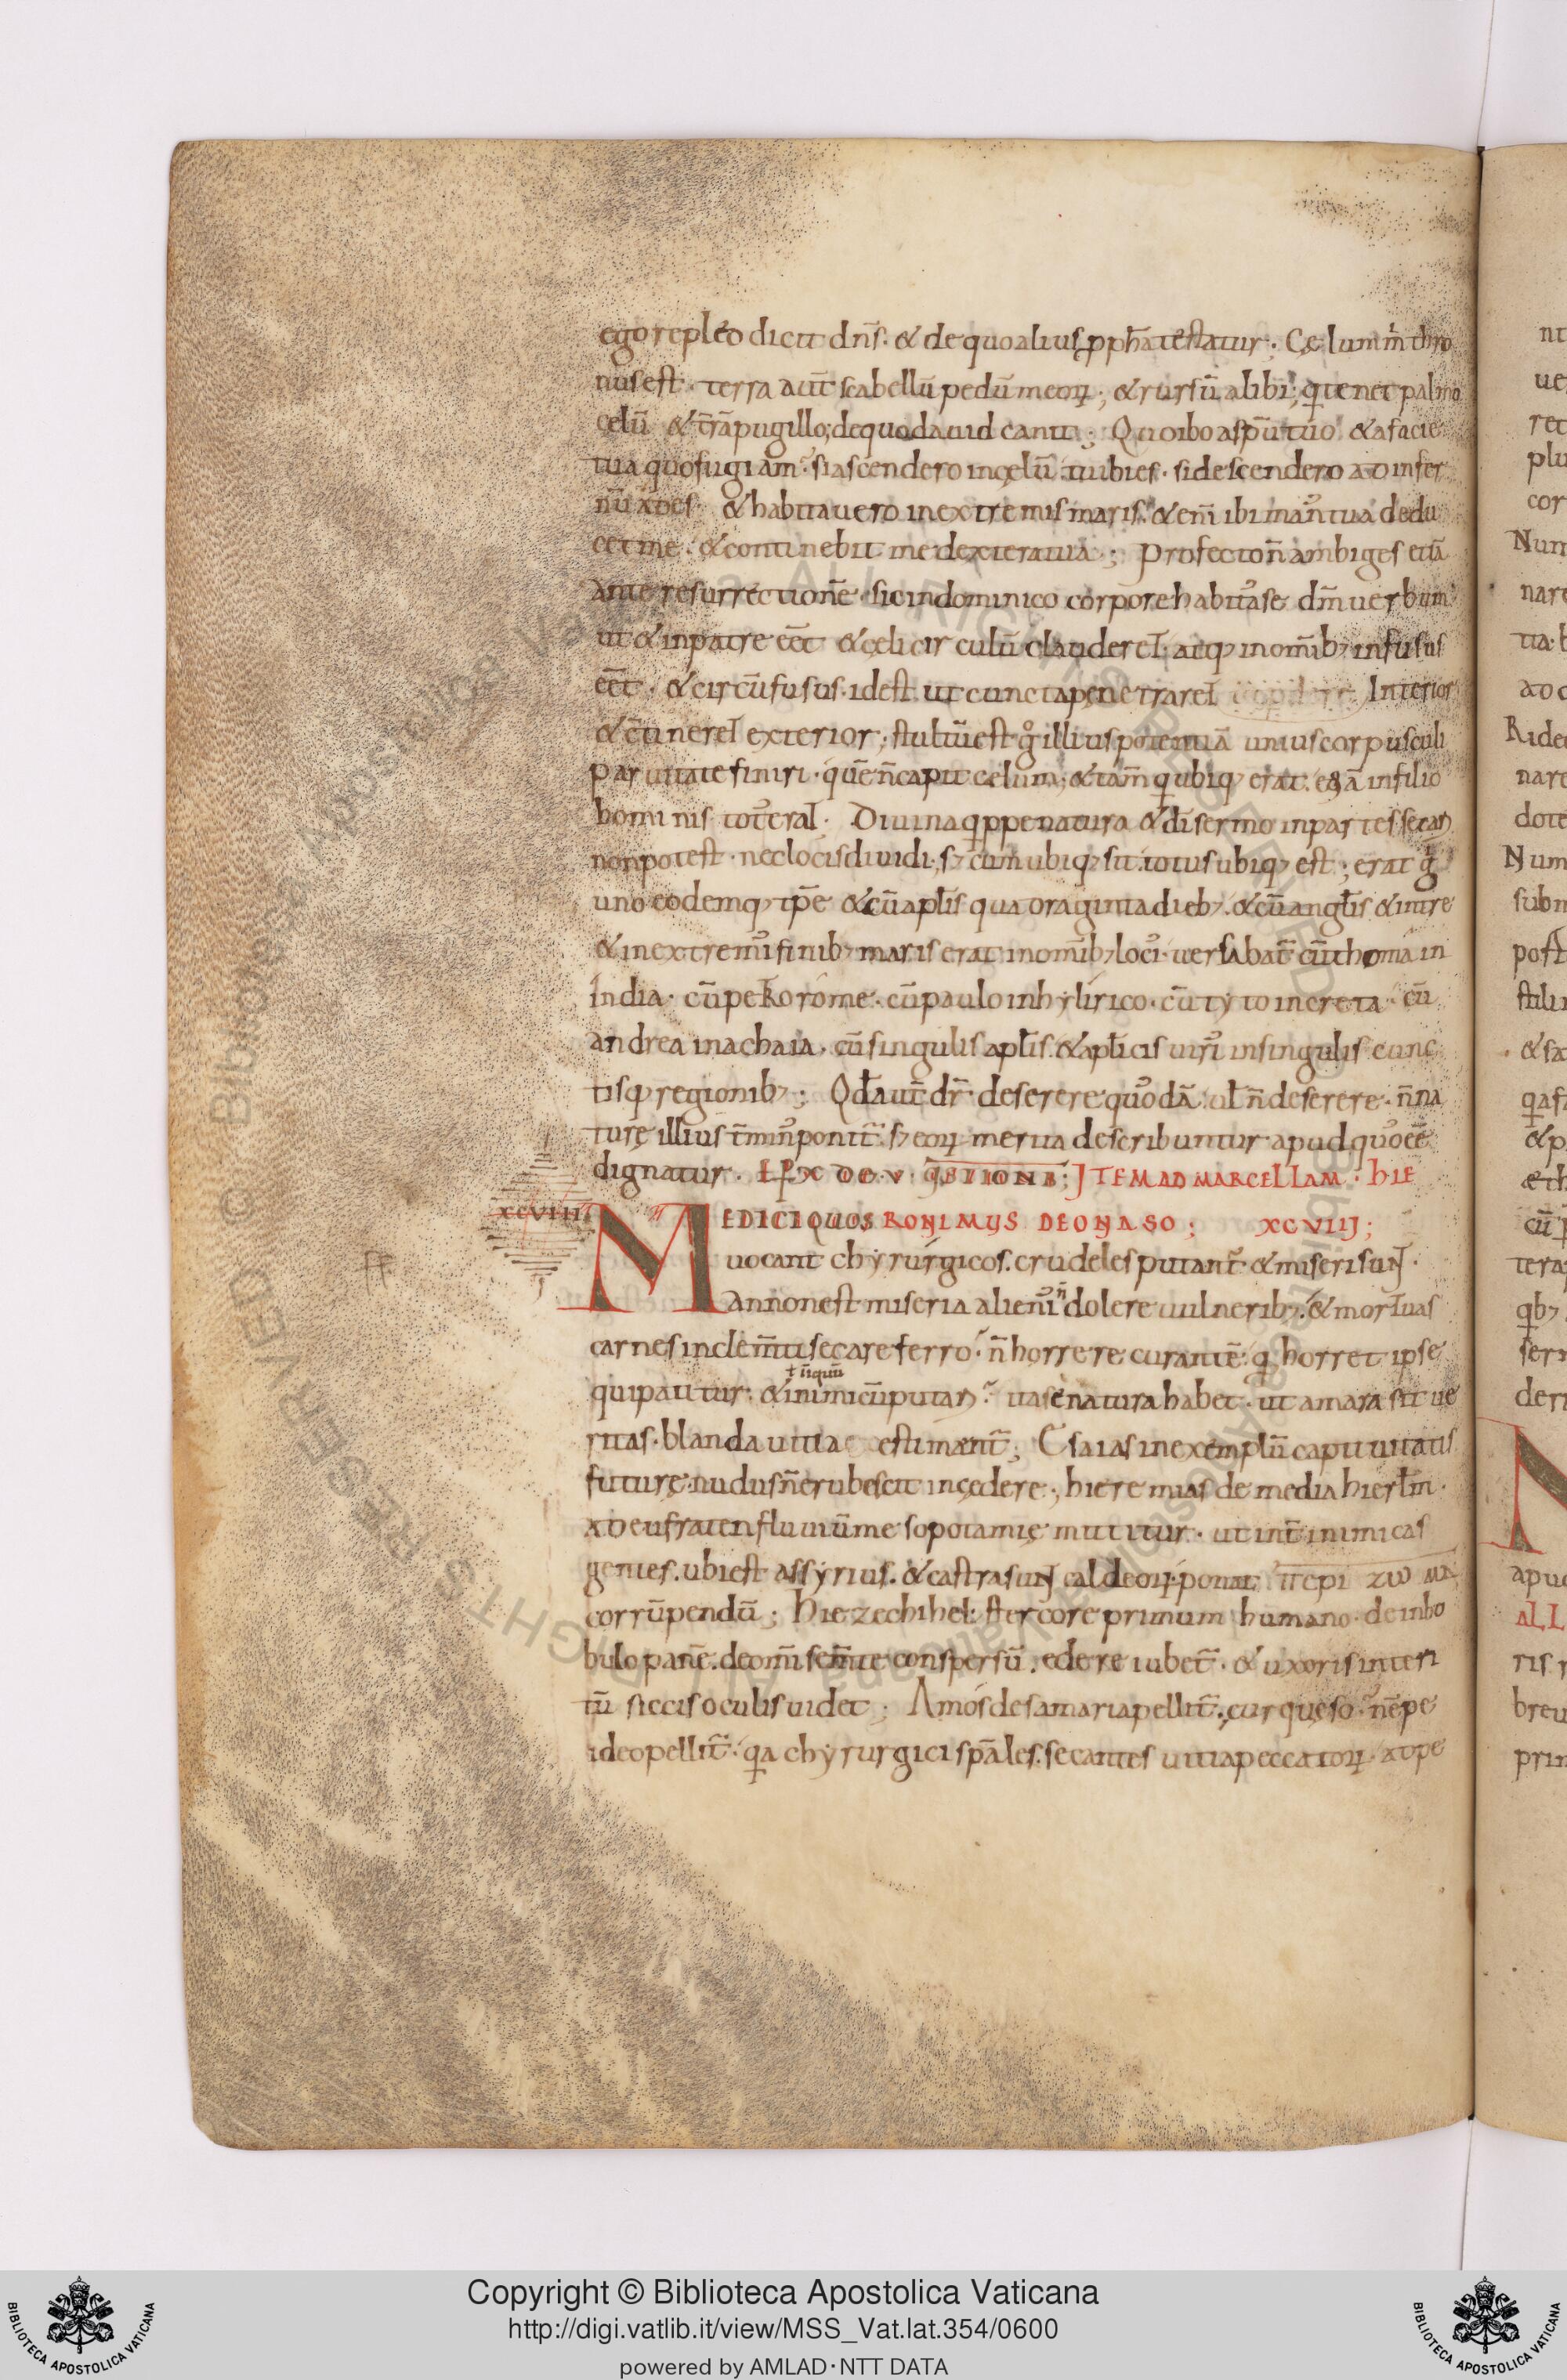 ego repleo dicit dn̄s. & de quo alius ꝓph̄a testatur; Cęlum m̄ thro
nus est. terra aut̄ scabellū pedū meoꝝ; & rursū alibi; q tenet palmo
cęlū & tr̄ā pugillo; de quo dauid canit; Quo ibo a sp̄u tuo & a facie
tua quo fugiam? si ascendero in cęlū tu ibi es. si descendero ad infer
nū ades. & habitauero in extremis maris. & eni ibi man tua dedu
cet me. & continebit me dextera tua; Profecto n̄ ambiges etiā
ante resurrectionē. sic in dominico corpore habitase dm̄ uerbum
ut & in patre eēt & cęli circulū clauderet. atqꝫ in om̄ibꝫ infusus
eēt. & circūfusus. id est ut cuncta penetraret Interior
& c̄tineret exterior; stultū est g illius potentiā unius corpusculi
paruitate finiri. quē n̄ capit celum; & tam̄ q ubiqꝫ erat. etiā in filio
hominis tot erat. Diuina qppe natura & di sermo in partes secari
non potest. nec locis diuidi; sꝫ cum ubiqꝫ sit totus ubiqꝫ est; erat g
uno eodemqꝫ tp̄e & cū apłis quatoraginta diebꝫ. & cū angłis & in tre
& in extremi finibꝫ maris erat in om̄ibꝫ loci. uersabat cū thoma in
india. cū petro rome. cū paulo in hylirico. cū tyto in creta. cū
andrea in achaia. cū singulis apłis. & apłicis uiri in singulis cunc
tisqꝫ regionibꝫ; Qd aut̄ dr̄ deserere quodā ul n̄ deserere. n̄ na
turę illius t̄min ponit. sꝫ eoꝝ merita describuntur apud quo eē
dignatur. EPX DE.V. QSTIONB; ITEM AD MARCELLAM. hIE
XCVIIII MEDICI QUOS RONIMUS DE ONASO; XCVIIIJ;
uocant chyrurgicos. crudeles putant & miseri sunt.
An non est miseria alieni n̄ dolere uulneribꝫ. & mortuas
carnes inclem̄ti secare ferro? n̄ horrere curantē. q horret ipse
ł iniquū
qui patitur. & inimicū putari? ita se natura habet. ut amara sit ue
ritas. blanda uitia estimant; Esaias in exemplū captiuitatis
futurę. nudus n̄ erubescit incędere; hieremias de media hierłm.
ad eufraten fluuiū mesopotamię mittitur. ut int̄ inimicas
gentes. ubi est assyrius. & castra sunt caldeoꝝ. ponat περι ζωμα
corrūpendū; Hiezechihel stercore primum humano. dein bo
bulo panē. de om̄i sem̄te conspersū. edere iubet. & uxoris interi
tū siccis oculis uidet; Amos de samaria pellit. cur queso? nēpe
ideo pellit. qa chyrurgici sp̄ales. secantes uitia peccatoꝝ. ad pe
nt
ue
rec
plu
cor
Num
nare
tia.
ad c
Ride
nare
dote
Num
sub m
post
stili
& sa
qa f
& p
cū
tera
qbꝫ
ser
der
apud
ALL
ris
breu
prim
© Biblioteca Apostolica Vaticana ALL RIGHTS RESERVED
Copyright © Biblioteca Apostolica Vaticana
http://digi.vatlib.it/view/MSS_Vat.lat.354/0600
powered by AMLAD·NTT DATA
BIBLIOTECA APOSTOLICA VATICANA
BIBLIOTECA APOSTOLICA VATICANA